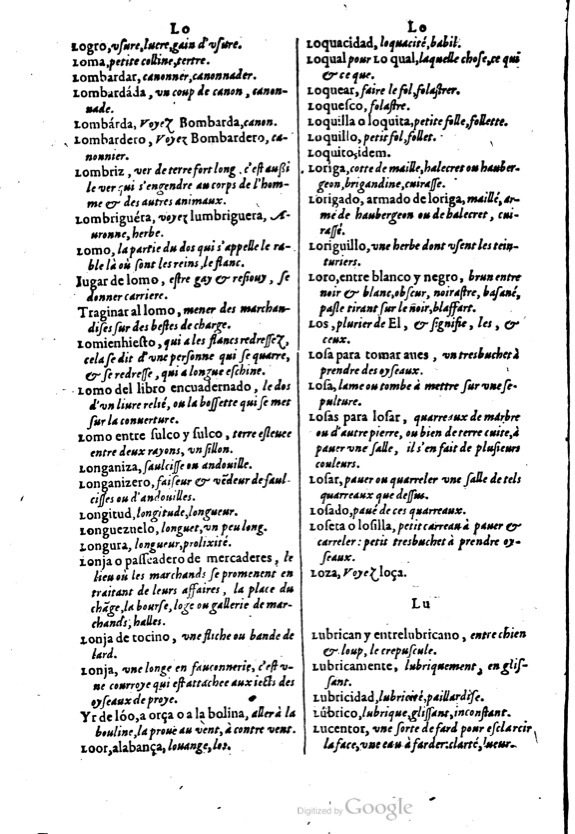 Lo
Logro, vsure, lucre, gain d'vsure.
Loma, petite colline, tertre.
Lombardar, canonner, canonnader.
Lombardáda, vn coup de canon, canon-
nade.
Lombárda, Voyez Bombarda, canon.
Lombardero, Voyez Bombardero, ca-
nonnier.
Lombriz, ver de terre fort long. c'est außi
le ver qui s'engendre au corps de l'hom-
me & des autres animaux.
Lombriguéra, voyez lumbriguera, Au-
ronne, herbe.
Lomo, la partie du dos qui s'appelle le ra-
ble là où sont les reins, le flanc.
Iugar de lomo, estre gay & resiouy, se
donner carriere.
Traginar al lomo, mener des marchan-
dises sur des bestes de charge.
Lomienhiesto, qui a les flancs redressez,
cela se dit d'vne personne qui se quarre,
& se redresse, qui a longue eschine.
Lomo del libro encuadernado, le dos
d'vn liure relié, ou la bossette qui se met
sur la couuerture.
Lomo entre sulco y sulco, terre esleuee
entre deux rayons, vn sillon.
Longaniza, saulcisse ou andouille.
Longanizero, faiseur & vẽdeur de saul-
cisses ou d'andouilles.
Longitud, longitude, longueur.
Longuezuelo, longuet, vn peu long.
Longura, longueur, prolixité.
Lonja o passeadero de mercaderes, le
lieu où les marchands se promenent en
traitant de leurs affaires, la place du
chãge, la bourse, loge ou gallerie de mar-
chands, halles.
Lonja de tocino, vne fliche ou bande de
lard.
Lonja, vne longe en fauconnerie, c'est v-
ne courroye qui est attachee aux iects des
oyseaux de proye.
Yr de lóo, a orça o a la bolina, aller à la
bouline, la prouë au vent, à contre vent.
Loor, alabança, louange, los.
Lo
Loquacidad, loquacité, babil.
Loqual pour Lo qual, laquelle chose, ce qui
& ce que.
Loquear, faire le fol, folastrer.
Loquesco, folastre.
Loquilla o loquita, petite folle, follette.
Loquillo, petit fol, follet.
Loquito, idem.
Loriga, cotte de maille, halecret ou hauber-
geon, brigandine, cuirasse.
Lorigado, armado de loriga, maillé, ar-
mé de haubergeon ou de halecret, cui-
rassé.
Loriguillo, vne herbe dont vsent les tein-
turiers.
Loro, entre blanco y negro, brun entre
noir & blanc, obscur, noirastre, basané,
pasle tirant sur le noir, blaffart.
Los, plurier de El, & signifie, les, &
ceux.
Losa para tomar aues, vn tresbuchet à
prendre des oyseaux.
Losa, lame ou tombe à mettre sur vne se-
pulture.
Losas para losar, quarreaux de marbre
ou d'autre pierre, ou bien de terre cuite, à
pauer vne salle, il s'en fait de plusieurs
couleurs.
Losar, pauer ou quarreler vne salle de tels
quarreaux que dessus.
Losado, paué de ces quarreaux.
Loseta o losilla, petit carreau à pauer &
carreler: petit tresbuchet à prendre oy-
seaux.
Loza, Voyez loça.
Lu
Lubrican y entrelubricano, entre chien
& loup, le crepuscule.
Lubricamente, lubriquement, en glis-
sant.
Lubricidad, lubricité, paillardise.
Lúbrico, lubrique, glissant, inconstant.
Lucentor, vne sorte de fard pour esclarcir
la face, vne eau à farder: clarté, lueur.
Digitized by Google